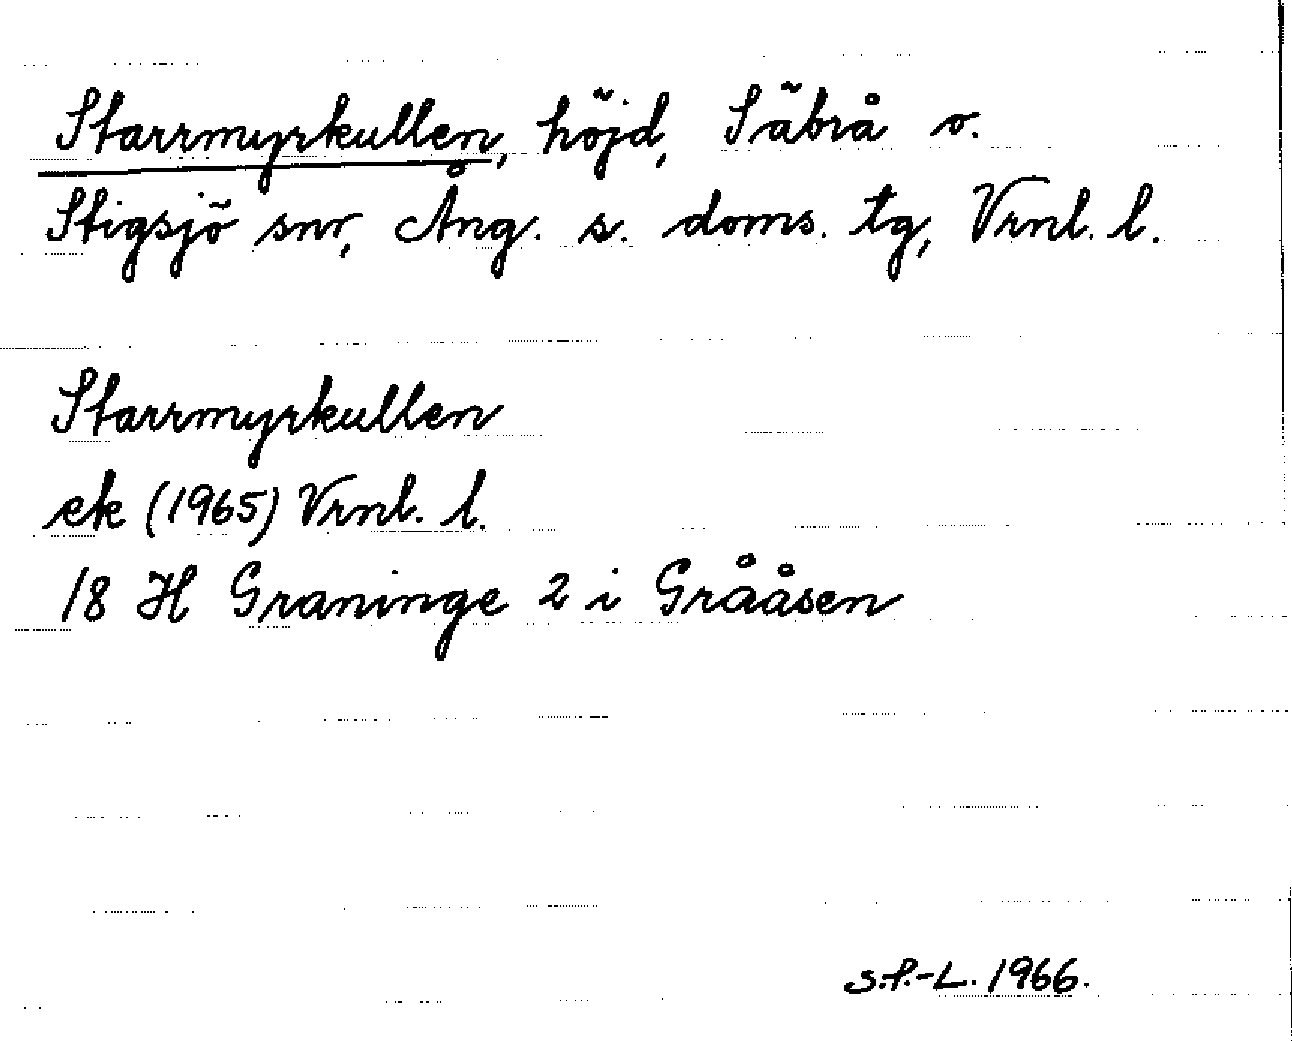 Starrmyrkullen, höjd, Säbrå o.
Stigsjö snr, Ång. s. doms. tg, Vrnl. l.
Starrmyrkullen
ek (1965) Vrnl. l.
18 H Graninge 2 i Grååsen
S.P.-L. 1966.